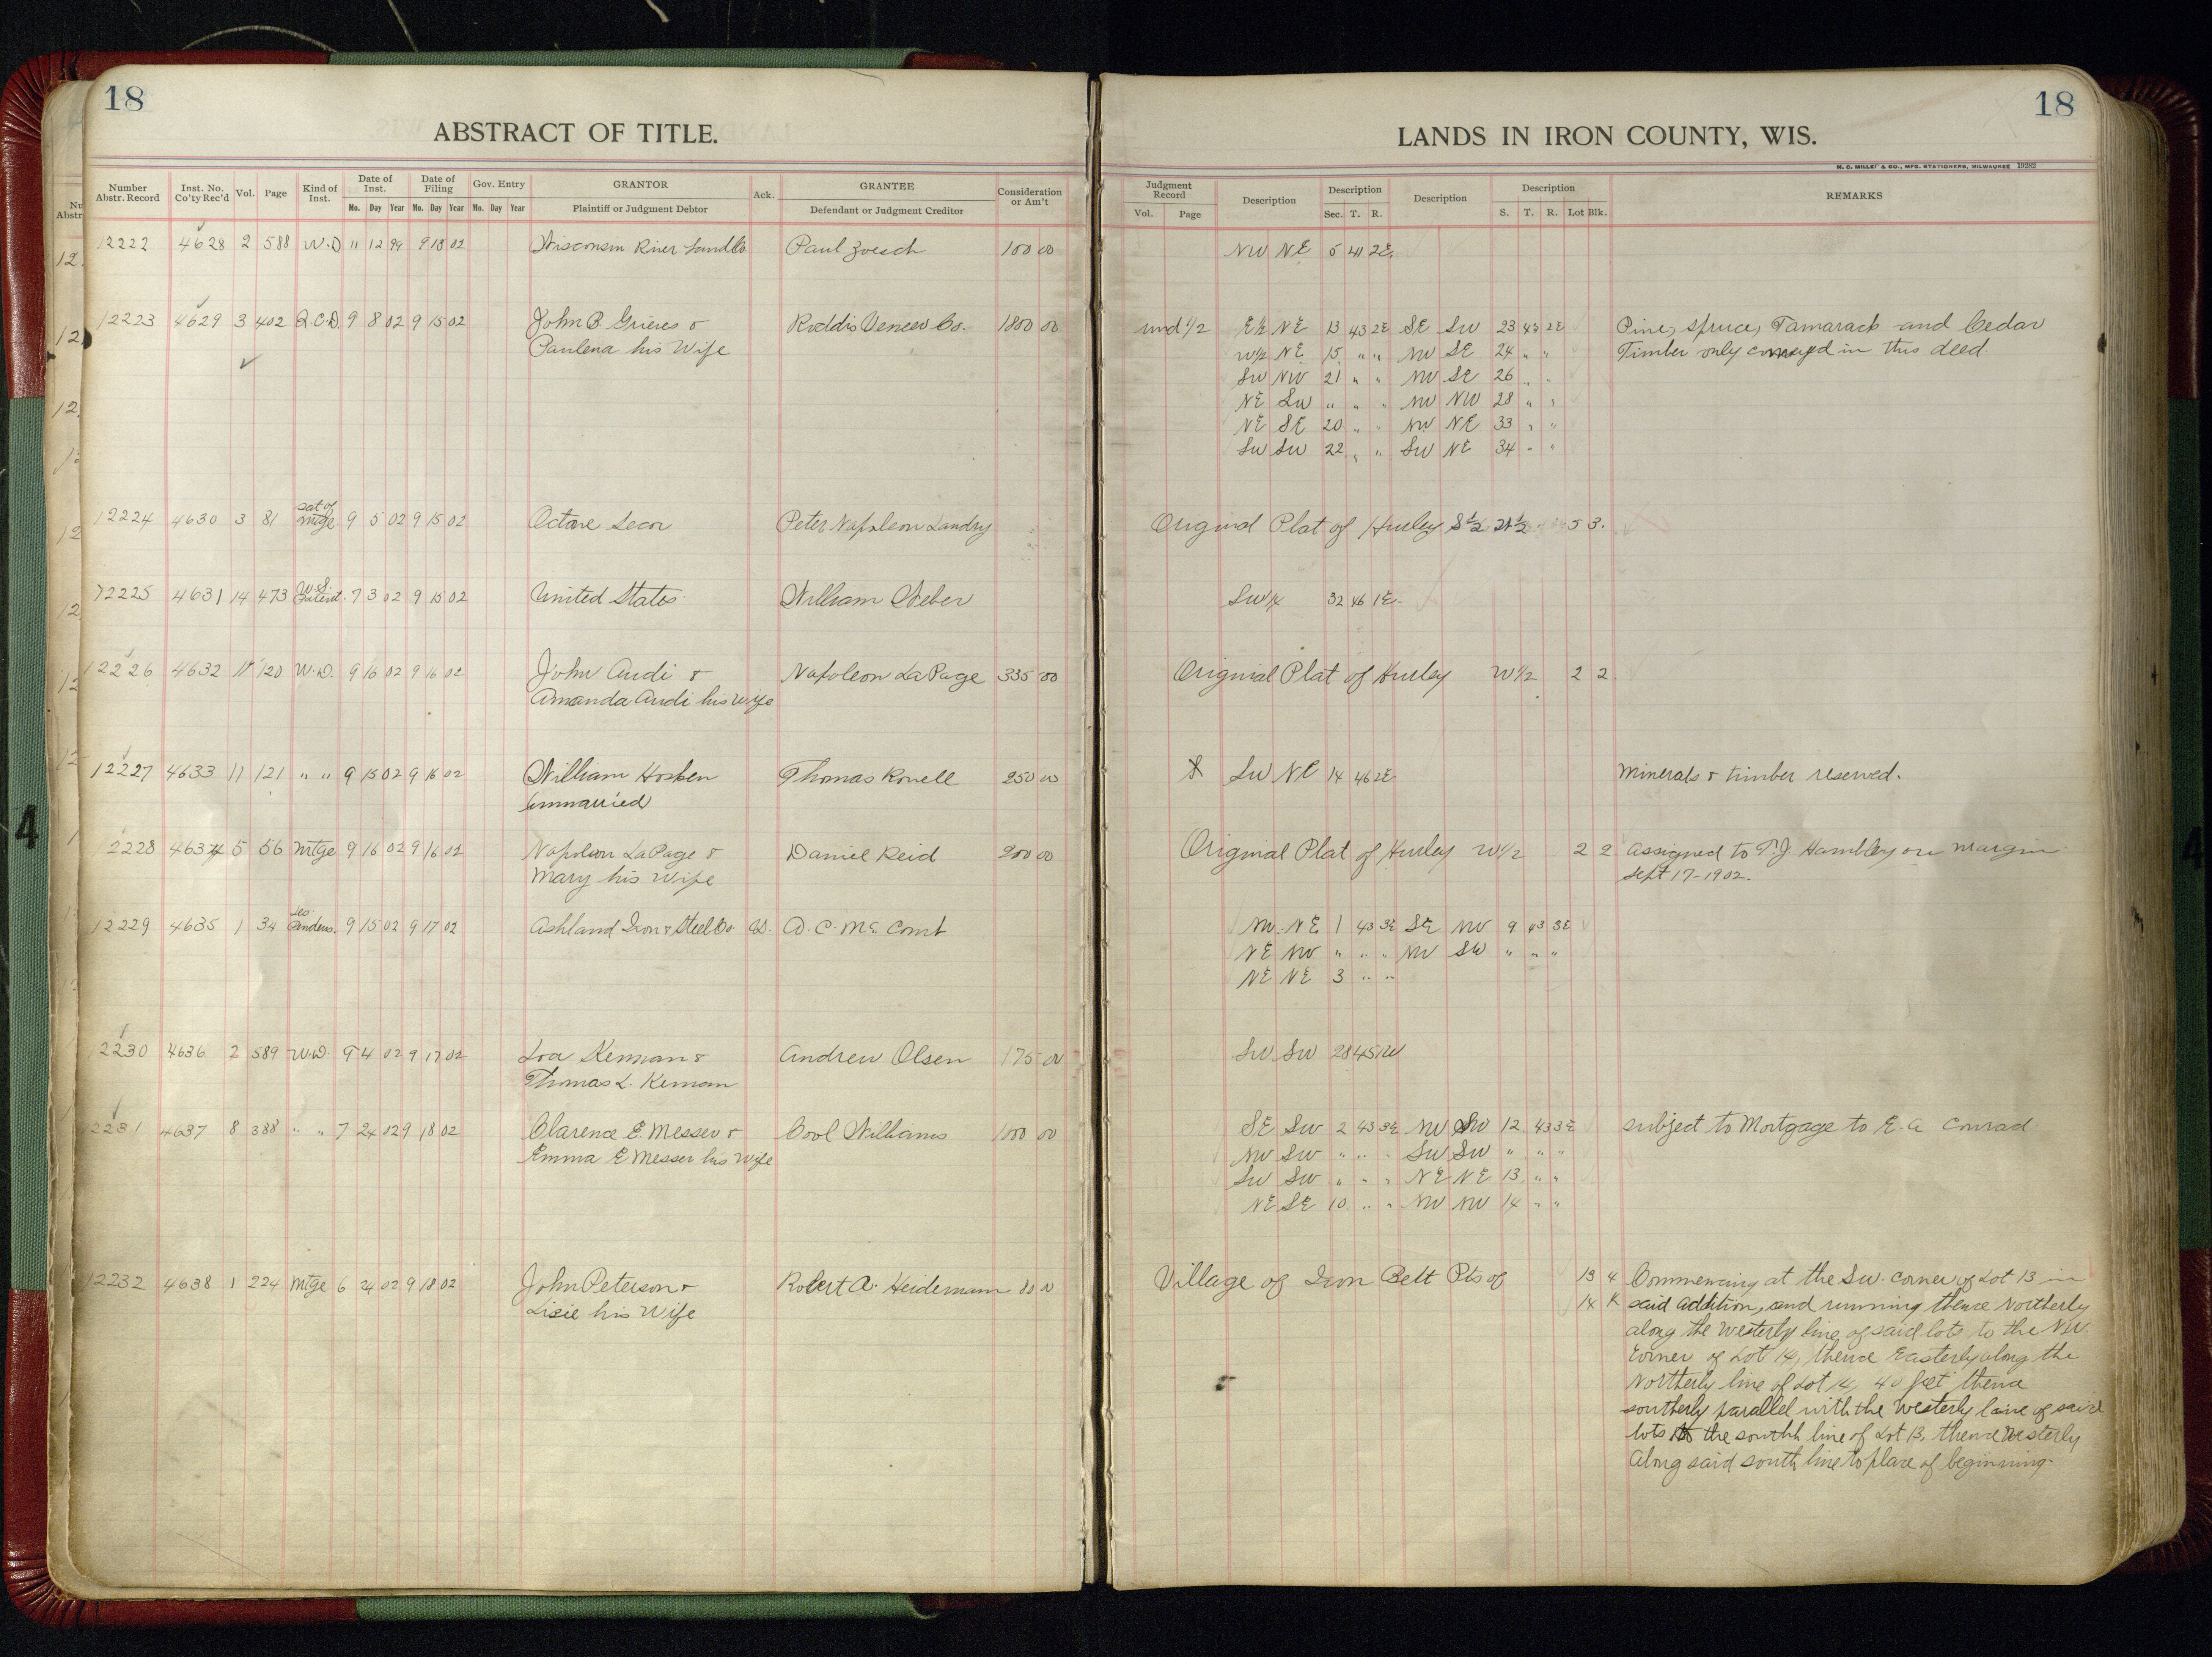 18
ABSTRACT OF TITLE.
Number Abstr. Record Inst. No. Co'ty Rec'd Vol. Page Kind of Inst. Date of Inst. Date of Filing Gov. Entry GRANTOR Ack. GRANTEE Consideration or Am't
Mo. Day Year Mo. Day Year Mo. Day Year Plaintiff or Judgment Debtor Defendant or Judgment Creditor
12222 4628 2 588 W.D 11 12 99 9 18 02 Wisconsin River Land Co Paul Zoesch 100 00
12223 4629 3 402 Q.C.D. 9 8 02 9 15 02 John B. Grieves & Roddis Veneer Co. 1800 00
Paulena his Wife
12224 4630 3 81 Sat of Mtge 9 5 02 9 15 02 Octave Peter Napoleon Landry
12225 4631 14 473 U.S. Patent. 7 3 02 9 15 02 United States. William Weber
12226 4632 11 120 W.D. 9 16 02 9 16 02 John Audi & Napoleon LaPage 335 00
Amanda Audi his Wife
12227 4633 11 121 " " 9 15 02 9 16 02 William Hosken Thomas Rowell 250 00
Unmarried
12228 4634 5 56 Mtge 9 16 02 9 16 02 Napoleon LaPage & Daniel Reid 200 00
Mary his Wife
12229 4635 1 34 Les Pendens. 9 15 02 9 17 02 Ashland Iron & Steel Co. vs. D. C. Mc. Comb
12230 4636 2 589 W.D. 9 4 02 9 17 02 Kernan & Andrew Olsen 175 00
Thomas L. Kernan
12231 4637 8 388 " " 7 24 02 9 18 02 Clarence E. Messer & Cool Williams 1000 00
Emma E Messer his Wife
12232 4638 1 224 Mtge 6 24 02 9 18 02 John Peterson & Robert A. Heidemann 80 00
Lizie his Wife
18
LANDS IN IRON COUNTY, WIS.
H. C. MILLER & CO., MFG. STATIONERS, MILWAUKEE 19282
Judgment Record Description Description Description Description REMARKS
Vol. Page Sec. T. R. S. T. R. Lot Blk.
NW NE 5 41 2E.
und 1/2 E1/2 NE 13 43 2E SE SW 23 43 2E Pine, Spruce, Tamarack and Cedar
W1/2 NE 15 " " NW SE 24 " " Timber only conveyed in this deed
SW NW 21 " " NW SE 26 " "
NE SW " " " NW NW 28 " "
NE SE 20 " " NW NE 33 " "
SW SW 22 " " SW NE 34 " "
Original Plat of Hurley S1/2 N1/2 5 3.
SW1/4 32 46 1E.
Original Plat of Hurley W1/2 2 2.
SW NE 14 46 2E Minerals & timber reserved.
Original Plat of Hurley W1/2 2 2 Assigned to T. J. Hambley on margin
Sept 17-1902.
NW. NE 1 43 3E SE NW 9 43 3E
NE NW " " " NW SW " " "
NE NE 3 " "
SW SW 28 45 1W
SE SW 2 43 3E NW SW 12 43 3E subject to Mortgage to E. A Conrad
NW SW " " " SW SW " " "
SW SW " " " NE NE 13 " "
NE SE 10 " " NW NW 14 " "
Village of Iron Belt Pts of 13 4 Commencing at the SW. corner of Lot 13 in
14 said Addition, and running thence Northerly
along the Westerly line of said lots to the NW
Corner of Lot 14, thence Easterly along the
Northerly line of Lot 14, 40 feet thence
southerly parallel with the Westerly line of said
lots to the south line of Lot 13, thence Westerly
Along said south line to place of beginning.
4
4